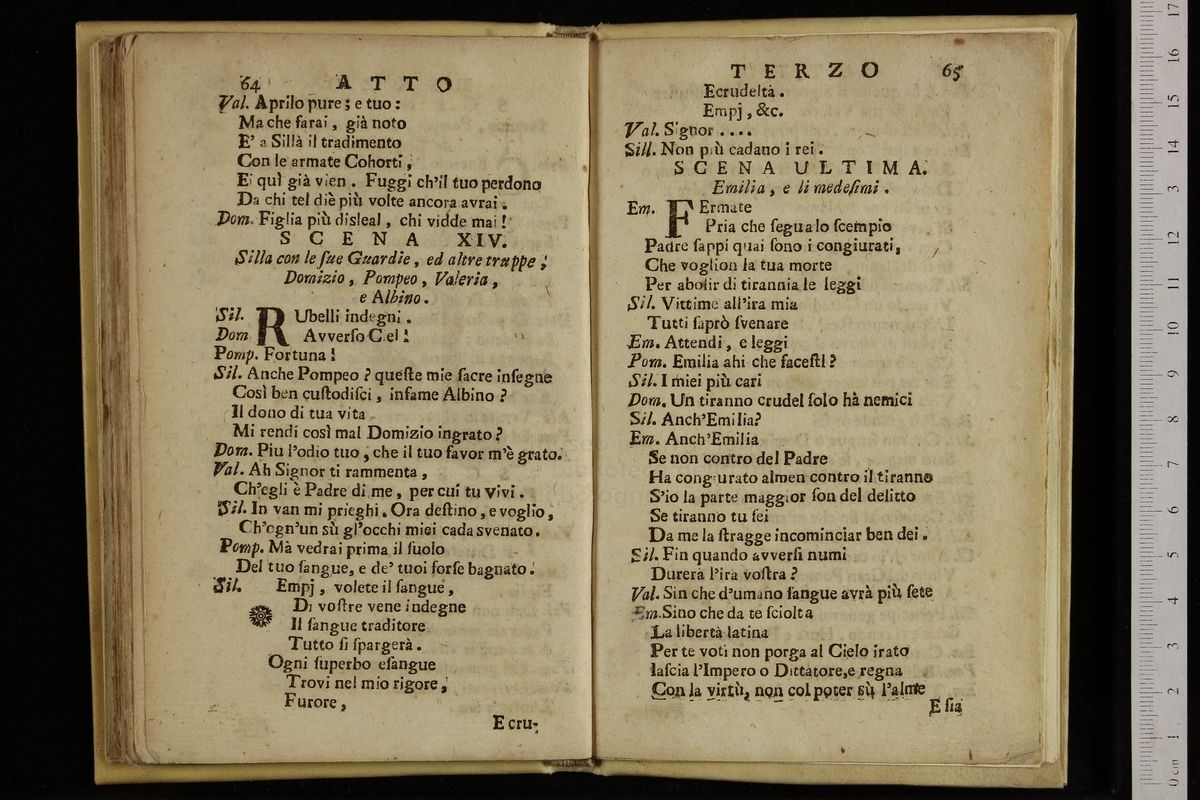 64 ATTO
Val. Aprilo pure; e tuo:
Ma che farai, già noto
E' a Sillà il tradimento
Con le armate Cohorti,
E quì già vien. Fuggi ch'il tuo perdono
Da chi tel diè più volte ancora avrai.
Dom. Figlia più disleal, chi vidde mai!
SCENA XIV.
Silla con le ſue Guardie, ed altre truppe,
Domizio, Pompeo, Valeria,
e Albino.
Sil. RUbelli indegni.
Dom. Avverſo Ciel!
Pomp. Fortuna!
Sil. Anche Pompeo? queſte mie ſacre inſegne
Così ben cuſtodiſci, infame Albino?
Il dono di tua vita
Mi rendi così mal Domizio ingrato?
Dom. Piu l'odio tuo, che il tuo favor m'è grato.
Val. Ah Signor ti rammenta,
Ch'egli è Padre di me, per cui tu vivi.
Sil. In van mi prieghi. Ora deſtino, e voglio,
Ch'ogn'un sù gl'occhi miei cada svenato.
Pomp. Mà vedrai prima il ſuolo
Del tuo ſangue, e de' tuoi forſe bagnato.
Sil. Empj, volete il ſangue,
Di voſtre vene indegne
Il ſangue traditore
Tutto ſi ſpargerà.
Ogni ſuperbo eſangue
Trovi nel mio rigore,
Furore,
E cru-
TERZO 65
Ecrudeltà.
Empj, &c.
Val. Signor ....
Sill. Non più cadano i rei.
SCENA ULTIMA.
Emilia, e li medeſimi.
Em. FErmate
Pria che ſegua lo ſcempio
Padre ſappi quai ſono i congiurati,
Che voglion la tua morte
Per abolir di tirannia le leggi
Sil. Vittime all'ira mia
Tutti ſaprò ſvenare
Em. Attendi, e leggi
Pom. Emilia ahi che faceſtI?
Sil. I miei più cari
Dom. Un tiranno crudel ſolo hà nemici
Sil. Anch'Emilia?
Em. Anch'Emilia
Se non contro del Padre
Ha congiurato almen contro il tiranno
S'io la parte maggior ſon del delitto
Se tiranno tu ſei
Da me la ſtragge incominciar ben dei.
Sil. Fin quando avverſi numi
Durerà l'ira voſtra?
Val. Sin che d'umano ſangue avrà più ſete
Em. Sino che da te ſciolta
La libertà latina
Per te voti non porga al Cielo irato
laſcia l'Impero o Dittatore, e regna
Con la virtù, non col poter sù l'alme
E ſia